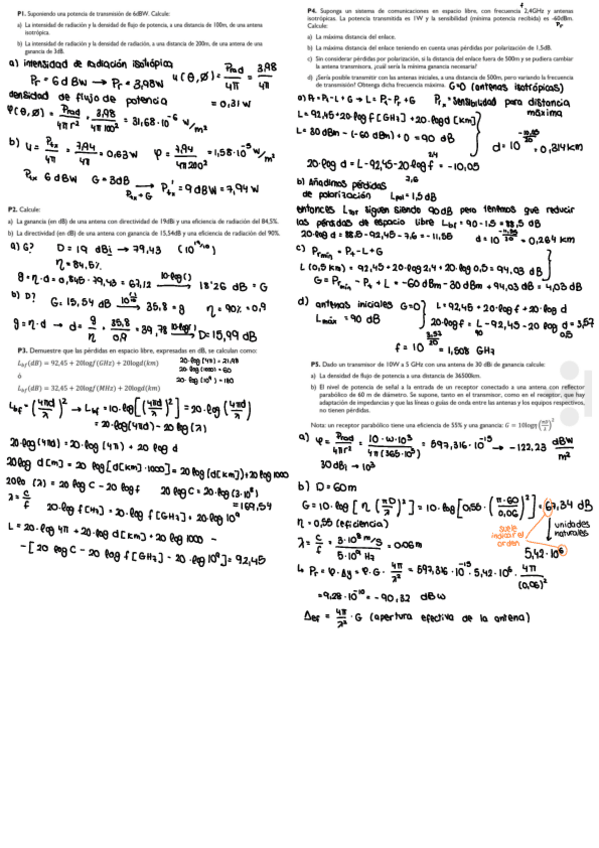 P1. Suponiendo una potencia de transmisión de 6dBW. Calcule:
a) La intensidad de radiación y la densidad de flujo de potencia, a una distancia de 100m, de una antena
isotrópica.
b) La intensidad de radiación y la densidad de radiación, a una distancia de 200m, de una antena de una
ganancia de 3dB.
a) intensidad de radiación isotrópica
Pr = 6 dBW → Pr = 3,98W u(θ,Ø) = Prad/4π = 3,98/4π
= 0,31W
densidad de flujo de potencia
φ(θ,Ø) = Prad/4πr² = 3,98/4π100² = 31,68·10⁻⁶ W/m²
b) u = Ptx/4π = 7,94/4π = 0,63W φ = 7,94/4π200² = 1,58·10⁻⁵ W/m²
Ptx 6dBW G=3dB Ptx+G P'tx = 9dBW = 7,94W
P2. Calcule:
a) La ganancia (en dB) de una antena con directividad de 19dB y una eficiencia de radiación del 84,5%.
b) La directividad (en dB) de una antena con ganancia de 15,54dB y una eficiencia de radiación del 90%.
a) G? D = 19 dBi → 79,43 (10^19/10)
η = 84,5%
g = η·d = 0,845·79,43 = 67,12 10·log() → 18'26 dB = G
b) D? G = 15,54 dB → 35,8 = g η = 90% = 0,9
g = η·d → d = g/η = 35,8/0,9 = 39,78 10·log() → D = 15,99 dB
P3. Demuestre que las pérdidas en espacio libre, expresadas en dB, se calculan como:
L_bf(dB) = 92,45 + 20logf(GHz) + 20logd(km)
20·log(4π) = 21,98
20·log(1000) = 60
ó
20·log(10⁹) = 180
L_bf(dB) = 32,45 + 20logf(MHz) + 20logd(km)
Lbf = (4πd/λ)² → Lbf = 10·log[(4πd/λ)²] = 20·log(4πd/λ)
= 20·log(4πd) − 20·log(λ)
20·log(4πd) = 20·log(4π) + 20·log d
20log d[m] = 20 log[d[km]·1000] = 20 log(d[km]) + 20 log 1000
20log (λ) = 20 log C − 20 log f 20 log C = 20·log(3·10⁸)
= 169,54
λ = c/f 20·log f[Hz] = 20·log f[GHz] + 20·log 10⁹
L = 20·log 4π + 20·log d[km] + 20·log 1000 −
−[20 log C − 20 log f[GHz] − 20·log 10⁹] = 92,45
P4. Suponga un sistema de comunicaciones en espacio libre, con frecuencia 2,4GHz y antenas
isotrópicas. La potencia transmitida es 1W y la sensibilidad (mínima potencia recibida) es -60dBm.
Calcule:
a) La máxima distancia del enlace.
b) La máxima distancia del enlace teniendo en cuenta unas pérdidas por polarización de 1,5dB.
c) Sin considerar pérdidas por polarización, si la distancia del enlace fuera de 500m y se pudiera cambiar
la antena transmisora, ¿cuál sería la mínima ganancia necesaria?
d) ¿Sería posible transmitir con las antenas iniciales, a una distancia de 500m, pero variando la frecuencia
de transmisión? Obtenga dicha frecuencia máxima. G=0 (antenas isotrópicas)
a) Pr = Pt − L + G → L = Pt − Pr + G Prx = sensibilidad para distancia
máxima
L = 92,45 + 20·log f[GHz] + 20·log d[Km]
L = 30 dBm − (−60 dBm) + 0 = 90 dB
d = 10^(−10,05/20) = 0,314 km
20·log d = L − 92,45 − 20·log f = −10,05
2,4
7,6
b) Añadimos pérdidas
de polarización Lpol = 1,5 dB
entonces Ltot siguen siendo 90dB pero tenemos que reducir
las pérdidas de espacio libre Lbf = 90 − 1,5 = 88,5 dB
20·log d = 88,5 − 92,45 − 7,6 = −11,55 d = 10^(−11,55/20) = 0,264 km
c) Prmín = Pt − L + G
L (0,5 km) = 92,45 + 20·log 2,4 + 20·log 0,5 = 94,03 dB
G = Prmín − Pt + L = −60 dBm − 30 dBm + 94,03 dB = 4,03 dB
d) antenas iniciales G=0 L = 92,45 + 20·log f + 20·log d
Lmáx = 90 dB 20·log f = L − 92,45 − 20 log d = 3,57
90
0,5
f = 10^(3,57/20) = 1,508 GHz
P5. Dado un transmisor de 10W a 5 GHz con una antena de 30 dBi de ganancia calcule:
a) La densidad de flujo de potencia a una distancia de 36500km.
b) El nivel de potencia de señal a la entrada de un receptor conectado a una antena con reflector
parabólico de 60 m de diámetro. Se supone, tanto en el transmisor, como en el receptor, que hay
adaptación de impedancias y que las líneas o guías de onda entre las antenas y los equipos respectivos,
no tienen pérdidas.
Nota: un receptor parabólico tiene una eficiencia de 55% y una ganancia: G = 10logη(πD/λ)²
a) φ = Prad/4πr² = 10·10³/4π(365·10⁵)² = 597,316·10⁻¹⁵ → −122,23 dBW/m²
30 dBi → 10³
b) D = 60m
G = 10·log[η(πD/λ)²] = 10·log[0,55·(π·60/0,06)²] = 67,34 dB
η = 0,55 (eficiencia)
suele indicar el orden
unidades
naturales
λ = c/f = 3·10⁸ m/s / 5·10⁹ Hz = 0,06m
5,42·10⁶
↳ Pr = φ·Aef = φ·G·4π/λ² = 597,316·10⁻¹⁵·5,42·10⁶·4π/(0,06)²
= 9,28·10⁻¹⁰ = −90,32 dBW
Aef = 4π/λ²·G (apertura efectiva de la antena)